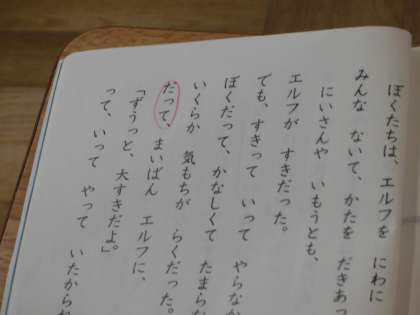 ぼくたちは、エルフを にわに
みんな ないて、かたを だきあっ
にいさんや いもうとも、
エルフが すきだった。
でも、すきって いって やらなか
ぼくだって、かなしくて たまらな
いくらか 気もちが らくだった。
だって、まいばん エルフに、
「ずうっと、大すきだよ。」
って、いって やって いたからね